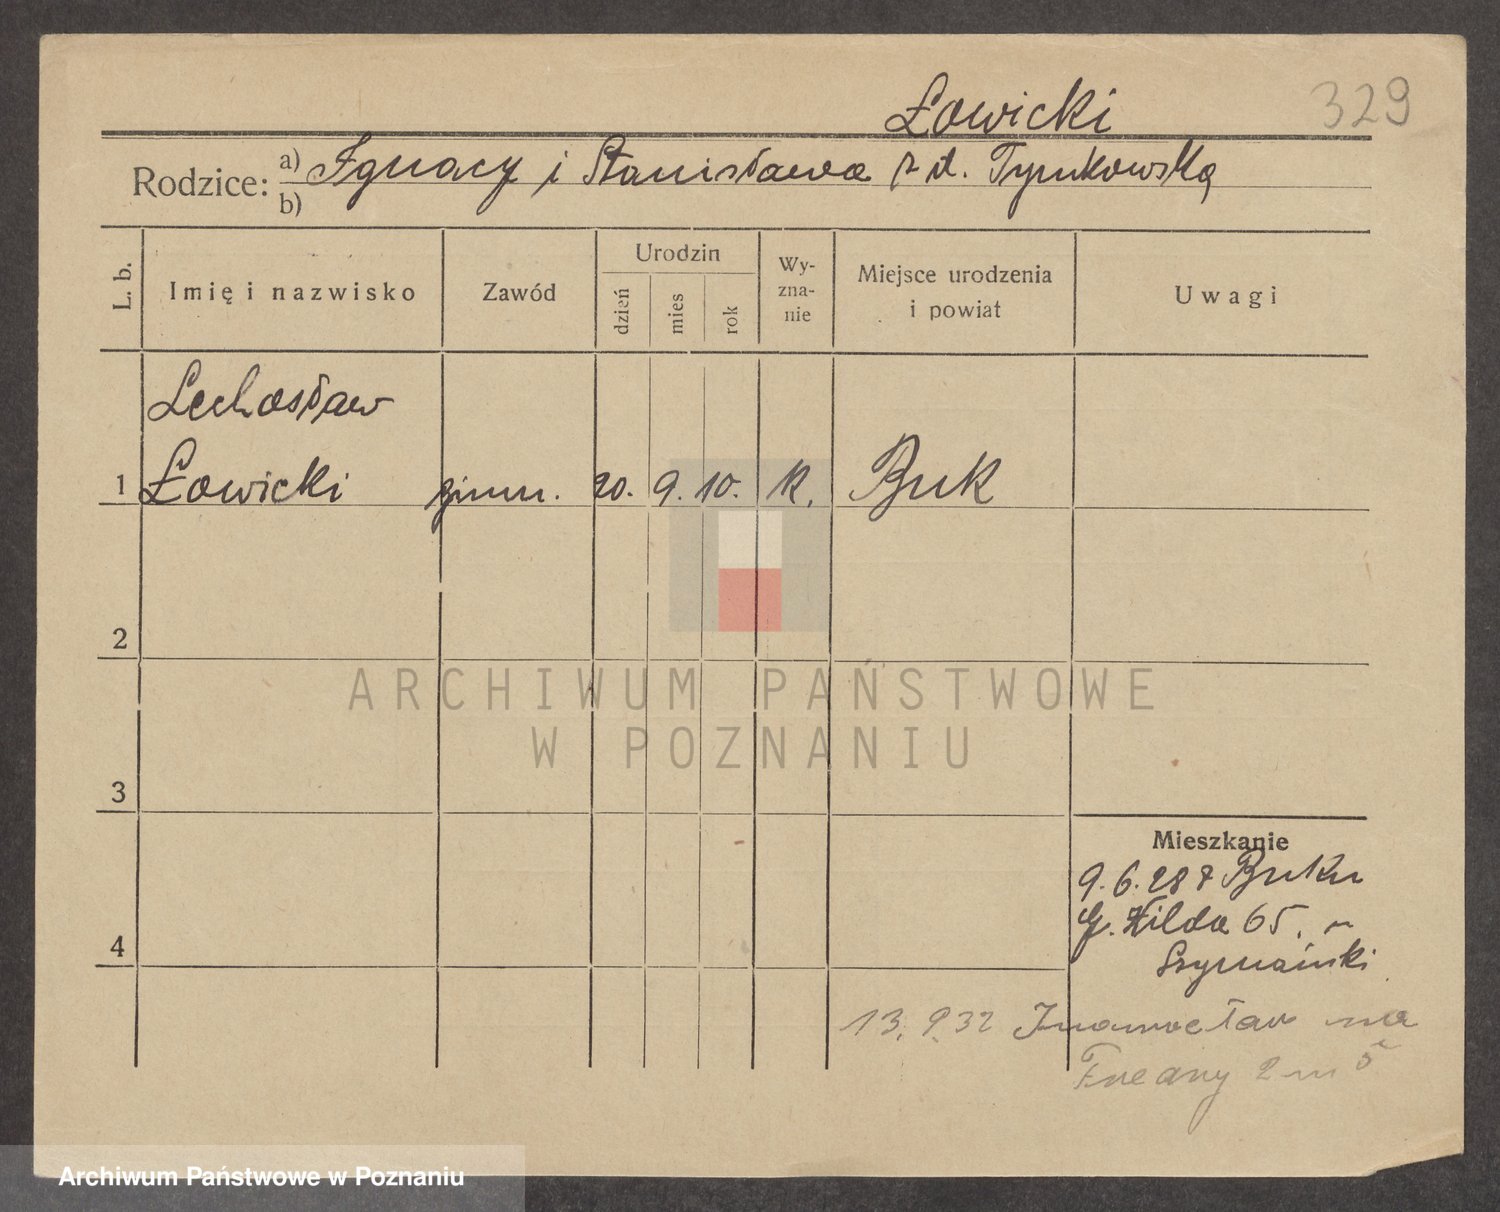 Łowicki
329
Rodzice: a) Ignacy i Stanisława z d. Tymkowska
b)
L. b.
Imię i nazwisko
Zawód
Urodzin
dzień
mies
rok
Wy-
zna-
nie
Miejsce urodzenia
i powiat
Uwagi
Lechosław
1 Łowicki gimn. 20. 9. 10. k. Buk
2
ARCHIWUM PAŃSTWOWE
W POZNANIU
3
Mieszkanie
9.6.28 z Buku
G. Wilda 65. -
4
Szymański
13.9.32 Inowrocław na
2 m 5
Archiwum Państwowe w Poznaniu